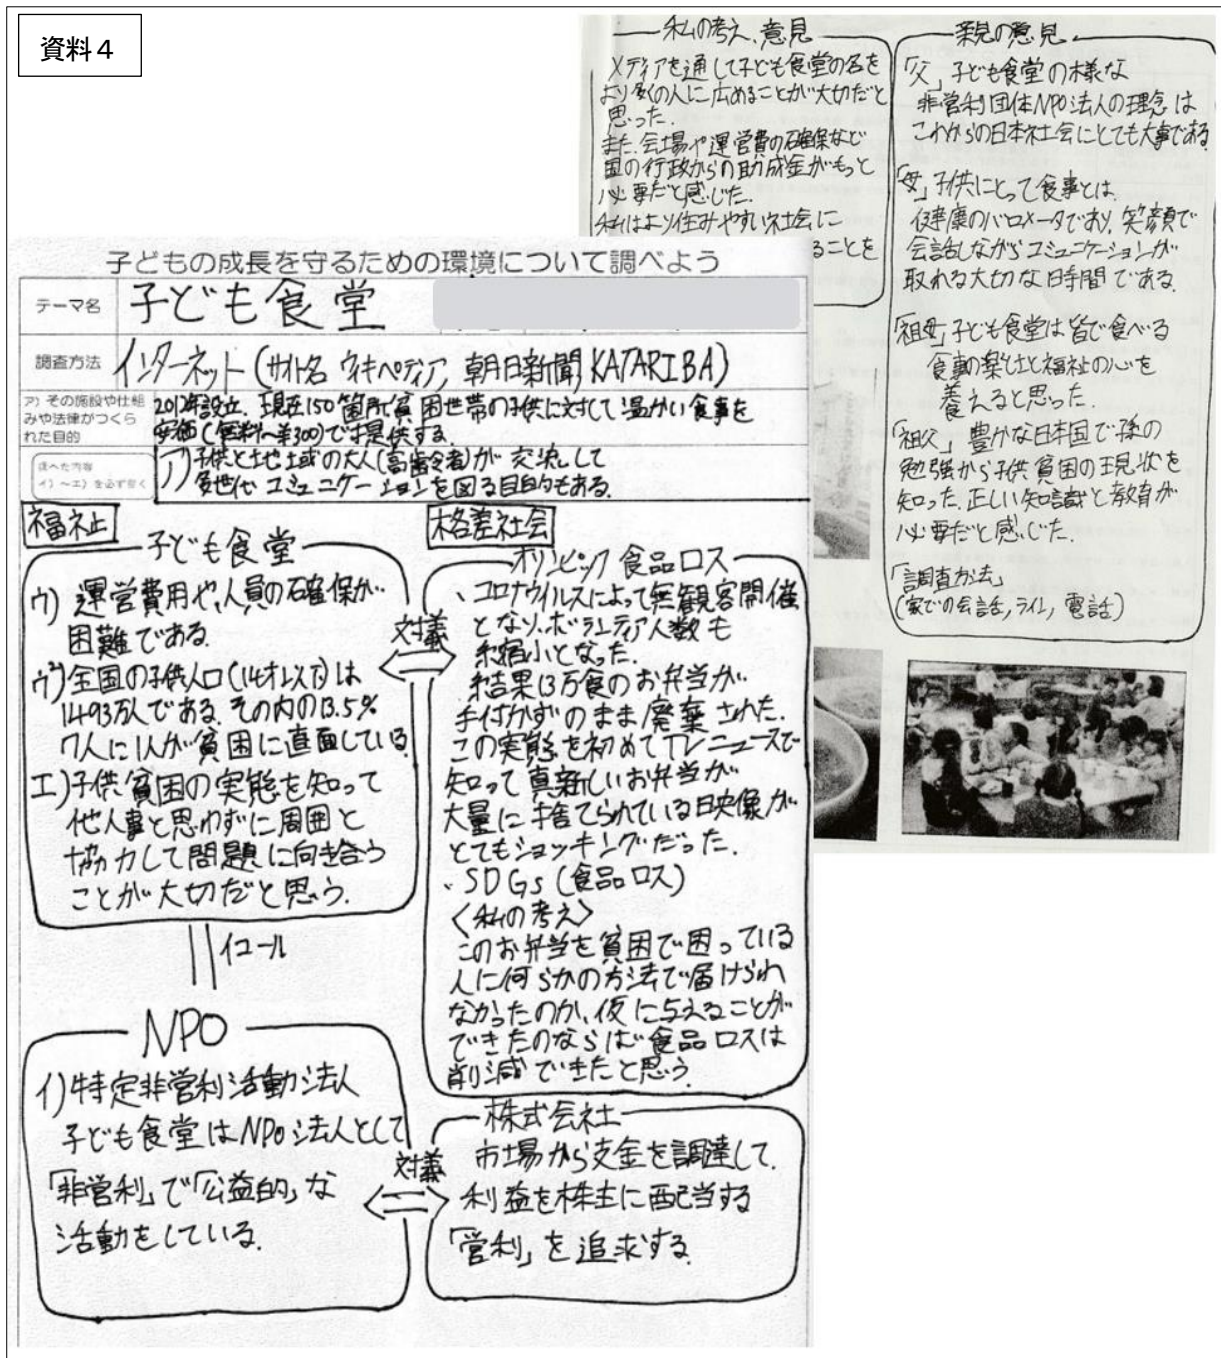 資料4
私の考え、意見
メディアを通して子ども食堂の名を
より多くの人に広めることが大切だと
思った.
また、会場や運営費の確保など
国の行政からの助成金がもっと
必要だと感じた.
私はより住みやすい社会に
ることを
親の意見
「父」子ども食堂の様な
非営利団体NPO法人の理念は
これからの日本社会にとても大事である
「母」子供にとって食事とは
健康のバロメータであり、笑顔で
会話しながらコミュニケーションが
取れる大切な時間である
「祖母」子ども食堂は皆で食べる
食事の楽しさと福祉の心を
養えると思った.
「祖父」豊かな日本国で孫の
勉強から子供貧困の現状を
知った.正しい知識と教育が
必要だと感じた.
「調査方法」
(家での会話,ライン,電話)
子どもの成長を守るための環境について調べよう
テーマ名 子ども食堂
調査方法 インターネット(サイト名 ウィキペディア,朝日新聞,KATARIBA)
ア)その施設や仕組
みや法律がつくら
れた目的
2012年設立.現在150箇所貧困世帯の子供に対して温かい食事を
安価(無料〜¥300)で提供する.
調べた内容
イ)〜エ)を必ず書く
ア)子供と地域の大人(高齢者)が交流して
多世代コミュニケーションを図る目的もある.
福祉
子ども食堂
ウ)運営費用や人員の確保が
困難である.
ウ)全国の子供人口(14才以下)は
1493万人である.その内の13.5%
7人に1人が貧困に直面している.
エ)子供貧困の実態を知って
他人事と思わずに周囲と
協力して問題に向き合う
ことが大切だと思う.
対義
格差社会
オリンピック食品ロス
、コロナウイルスによって無観客開催
となり、ボランティア人数も
縮小となった.
結果13万食のお弁当が
手付かずのまま廃棄された.
この実態を初めてTVニュースで
知って真新しいお弁当が
大量に捨てられている映像が
とてもショッキングだった.
、SDGs(食品ロス)
<私の考え>
このお弁当を貧困で困っている
人に何らかの方法で届けられ
なかったのか、仮に与えることが
できたのならば食品ロスは
削減できたと思う.
イコール
NPO
イ)特定非営利活動法人
子ども食堂はNPO法人として
「非営利」で「公益的」な
活動をしている.
対義
株式会社
市場から支金を調達して.
利益を株主に配当する
「営利」を追求する.